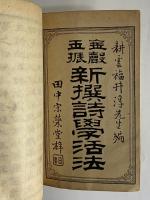 耕雲福井淳先生編
巖谷
五振
新撰詩學活法
田中宋榮堂梓